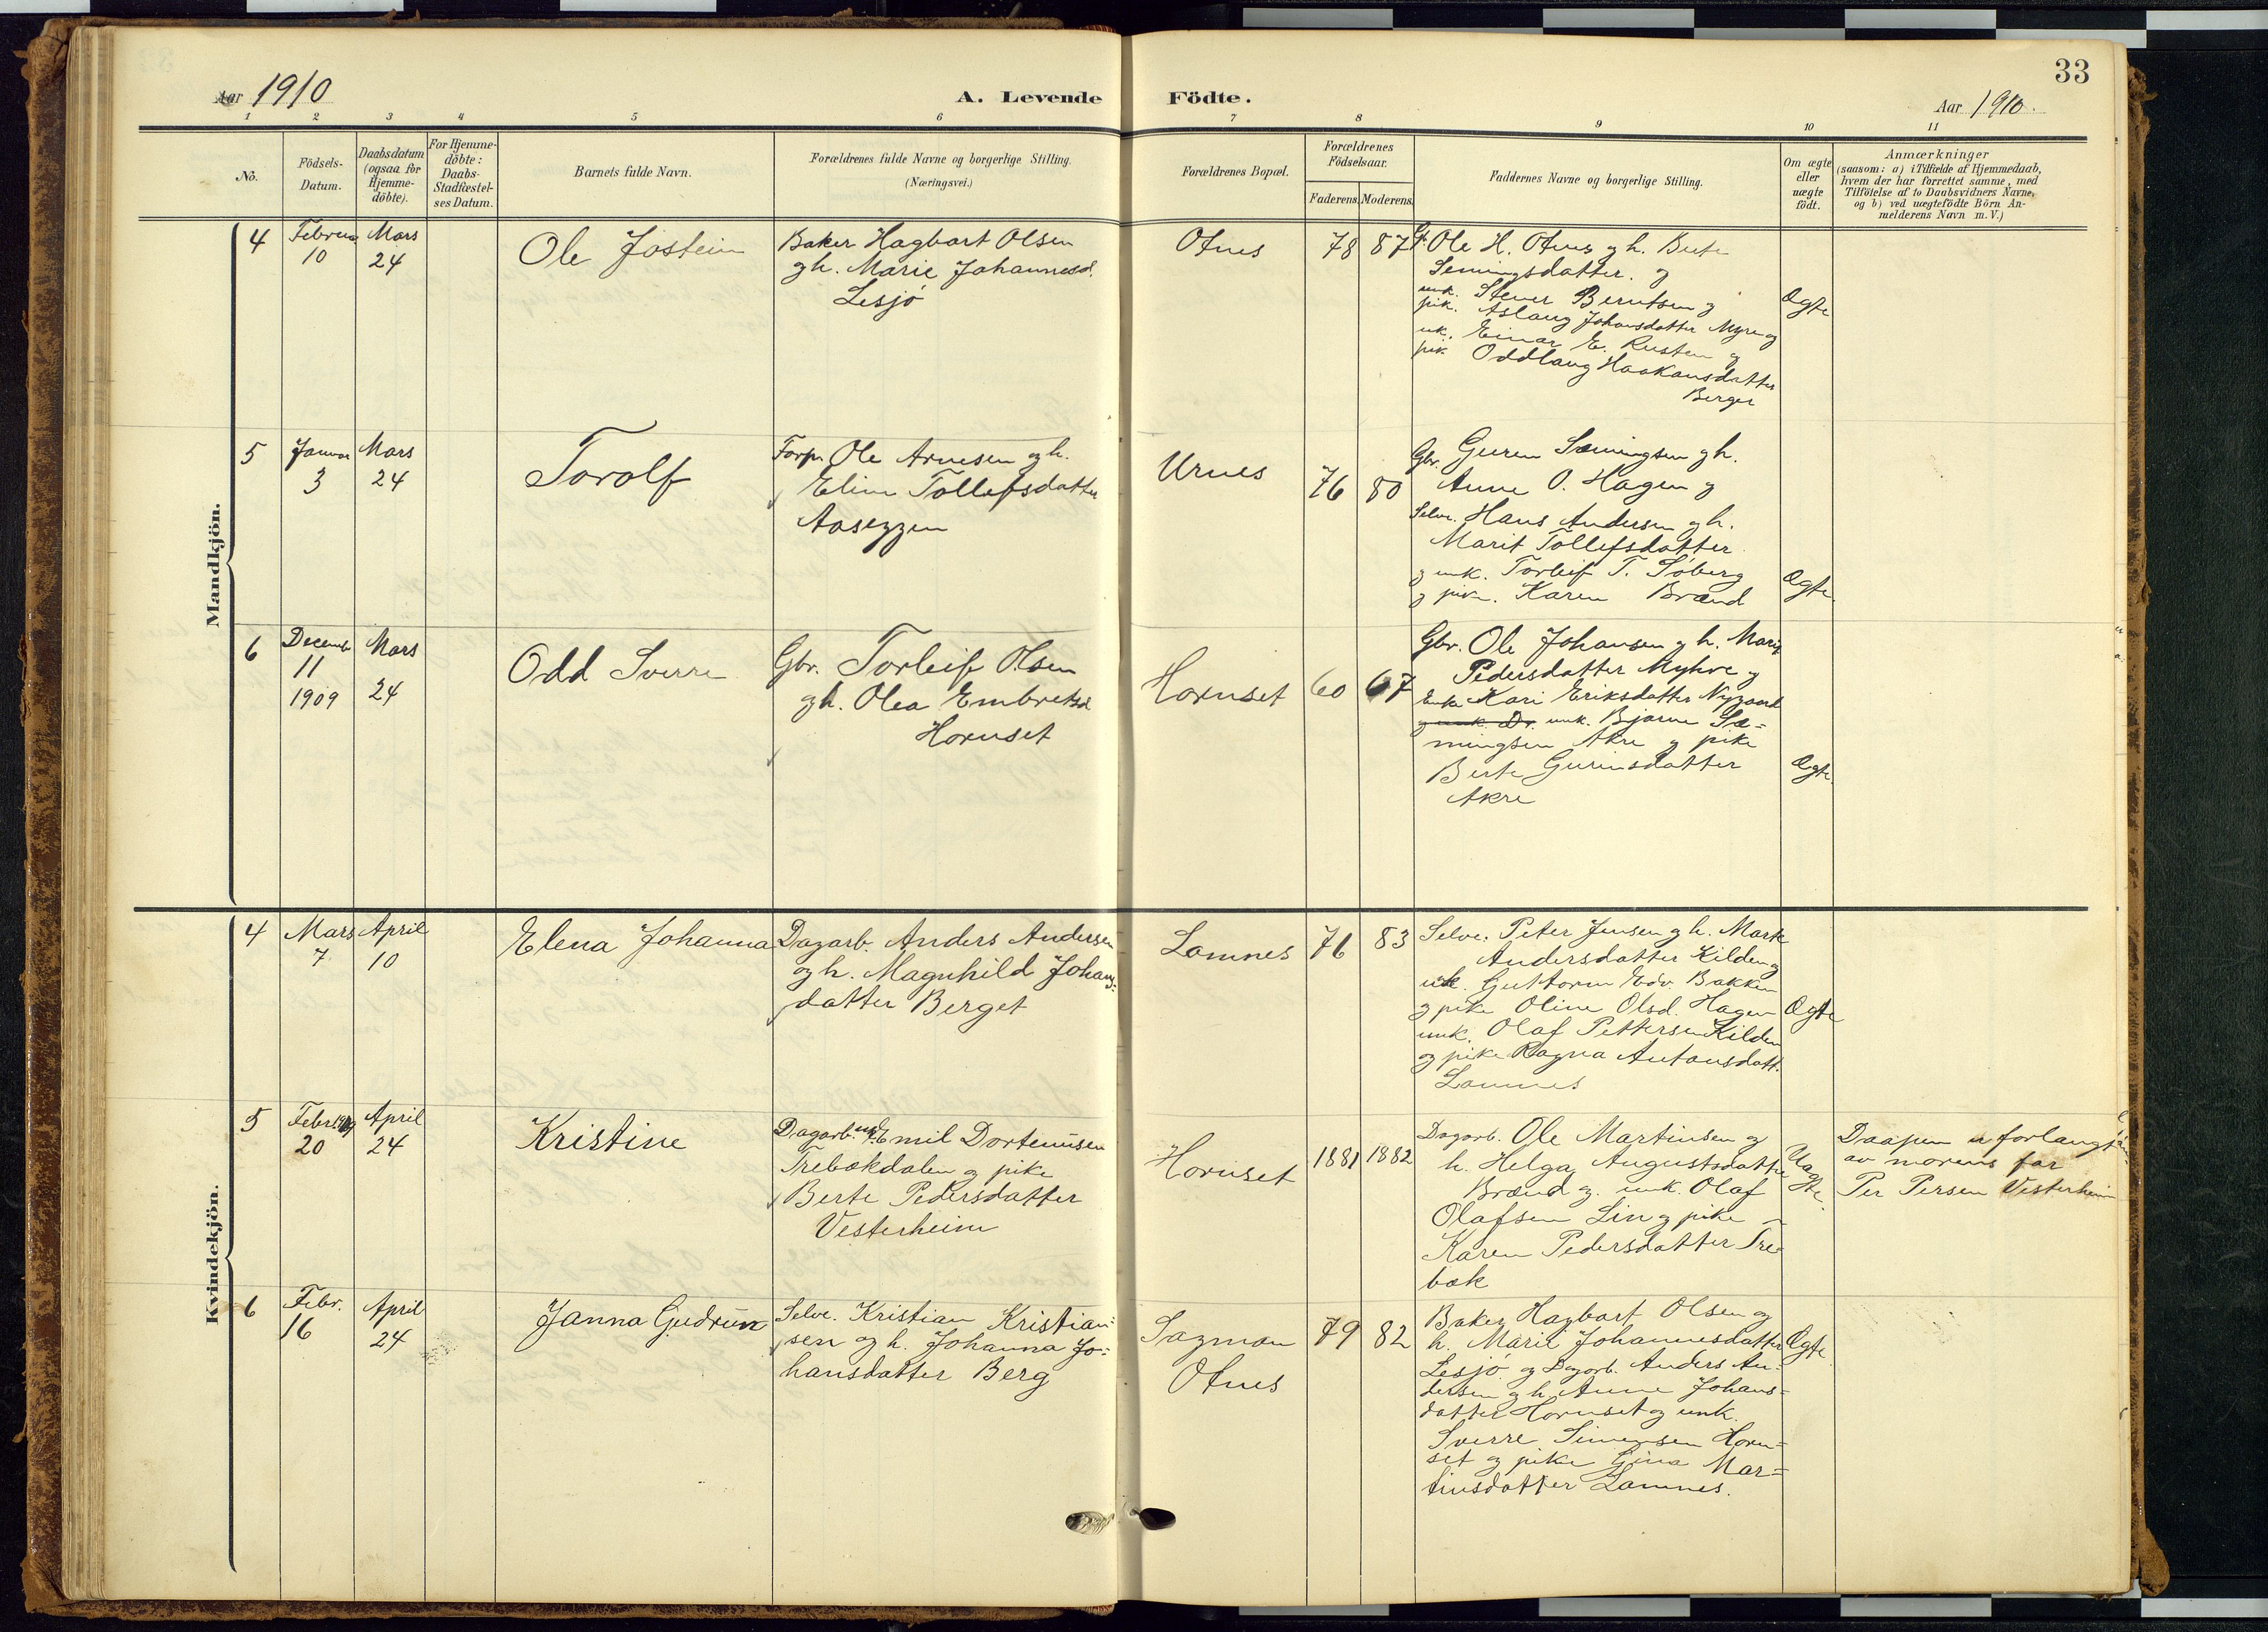 33
Aar 1910
A. Levende Födte.
Aar 1910.
1 2 3 4 5 6 7 8 9 10 11
No.
Födsels-
Datum.
Daabsdatum
(ogsaa for
Hjemme-
döbte).
For Hjemme-
döbte:
Daabs-
Stadfæstel-
ses Datum.
Barnets fulde Navn.
Forældrenes fulde Navne og borgerlige Stilling.
(Næringsvei.)
Forældrenes Bopæl.
Forældrenes
Födselsaar.
Faderens. Moderens.
Faddernes Navne og borgerlige Stilling.
Om ægte
eller
uægte
födt.
Anmærkninger
(saasom: a) i Tilfælde af Hjemmedaab,
hvem der har forrettet samme, med
Tilföielse af to Daabsvidners Navne,
og b) ved uægtefödte Börn An-
melderens Navn m. V.)
Mandkjön.
4
Februar
10
Mars
24
Ole Jostein
Baker Hagbart Olsen
og h. Marie Johannesd.
Lesjö
Otnes
78 87
Ole H. Otnes og h. Berte
Semingsdatter. og
unk. Stener Berntsen og
pik. Aslaug Johansdatter Myre og
unk. Einar E. Rusten og
pik Oddlaug Haakansdatter
Berger
Ægte
5
Januar
3
Mars
24
Torolf
Forp. Ole Arnesen og h.
Eline Tollefsdatter
Aaseggen
Urnes
76 80
Gbr. Guren Semingsen og h.
Anne O. Hagen og
Selve. Hans Andersen og h.
Marit Tollefsdatter
og unk. Torleif T. Söberg
og pike. Karen Brænd
Ægte
6
Decemb
11
1909
Mars
24
Odd Sverre
Gbr. Torleif Olsen
og h. Olea Embretsd
Hornset
Hornset
60 67
Gbr. Ole Johansen og h. Marie
Pedersdatter Myhre og
Enke Kari Eriksdatter Nygaard
og unk. Dr. unk. Bjarne Sæ=
mingsen Akre og pike
Berte Gurinsdatter
Akre
Ægte
Kvindekjön.
4
Mars
7
April
10
Elena Johanna
Dagarb. Anders Andersen
og h. Magnhild Johans=
datter Berget
Lomnes
76 83
Selve. Peter Jensen og h. Marte
Andersdatter Kilden og
unk. Guttorm Edv. Bakken
og pike Oline Olsd. Hagen
unk. Olaf Pettersen Kilden
og pike Ragna Antonsdatt.
Lomnes
Ægte
5
Febr. 1909
20
April
24
Kristine
Dagarb. unk. Emil Dortenüsen
Trebækdalen og pike
Berte Pedersdatter
Vesterheim
Hornset
1881 1882
Dagarb. Ole Martinsen og
h. Helga Augustsdatter
Brænd og. unk. Olaf
Olafsen Lin og pike
Karen Pedersdatter Tre-
bæk
Uægte
Daapen er forlangt
av morens far
Per Persen Vesterheim
6
Febr.
16
April
24
Janna Gudrün
Selve. Kristian Kristian=
sen og h. Johanna Jo=
hansdatter Berg
Sagmoen
Otnes
79 82
Baker Hagbart Olsen og
h. Marie Johannesdatter
Lesjö og Dagarb. Anders An-
dersen og h. Anne Johans=
datter Hornset og unk.
Sverre Simensen Horn=
set og pike Gina Mar=
tinsdatter Lomnes.
Ægte